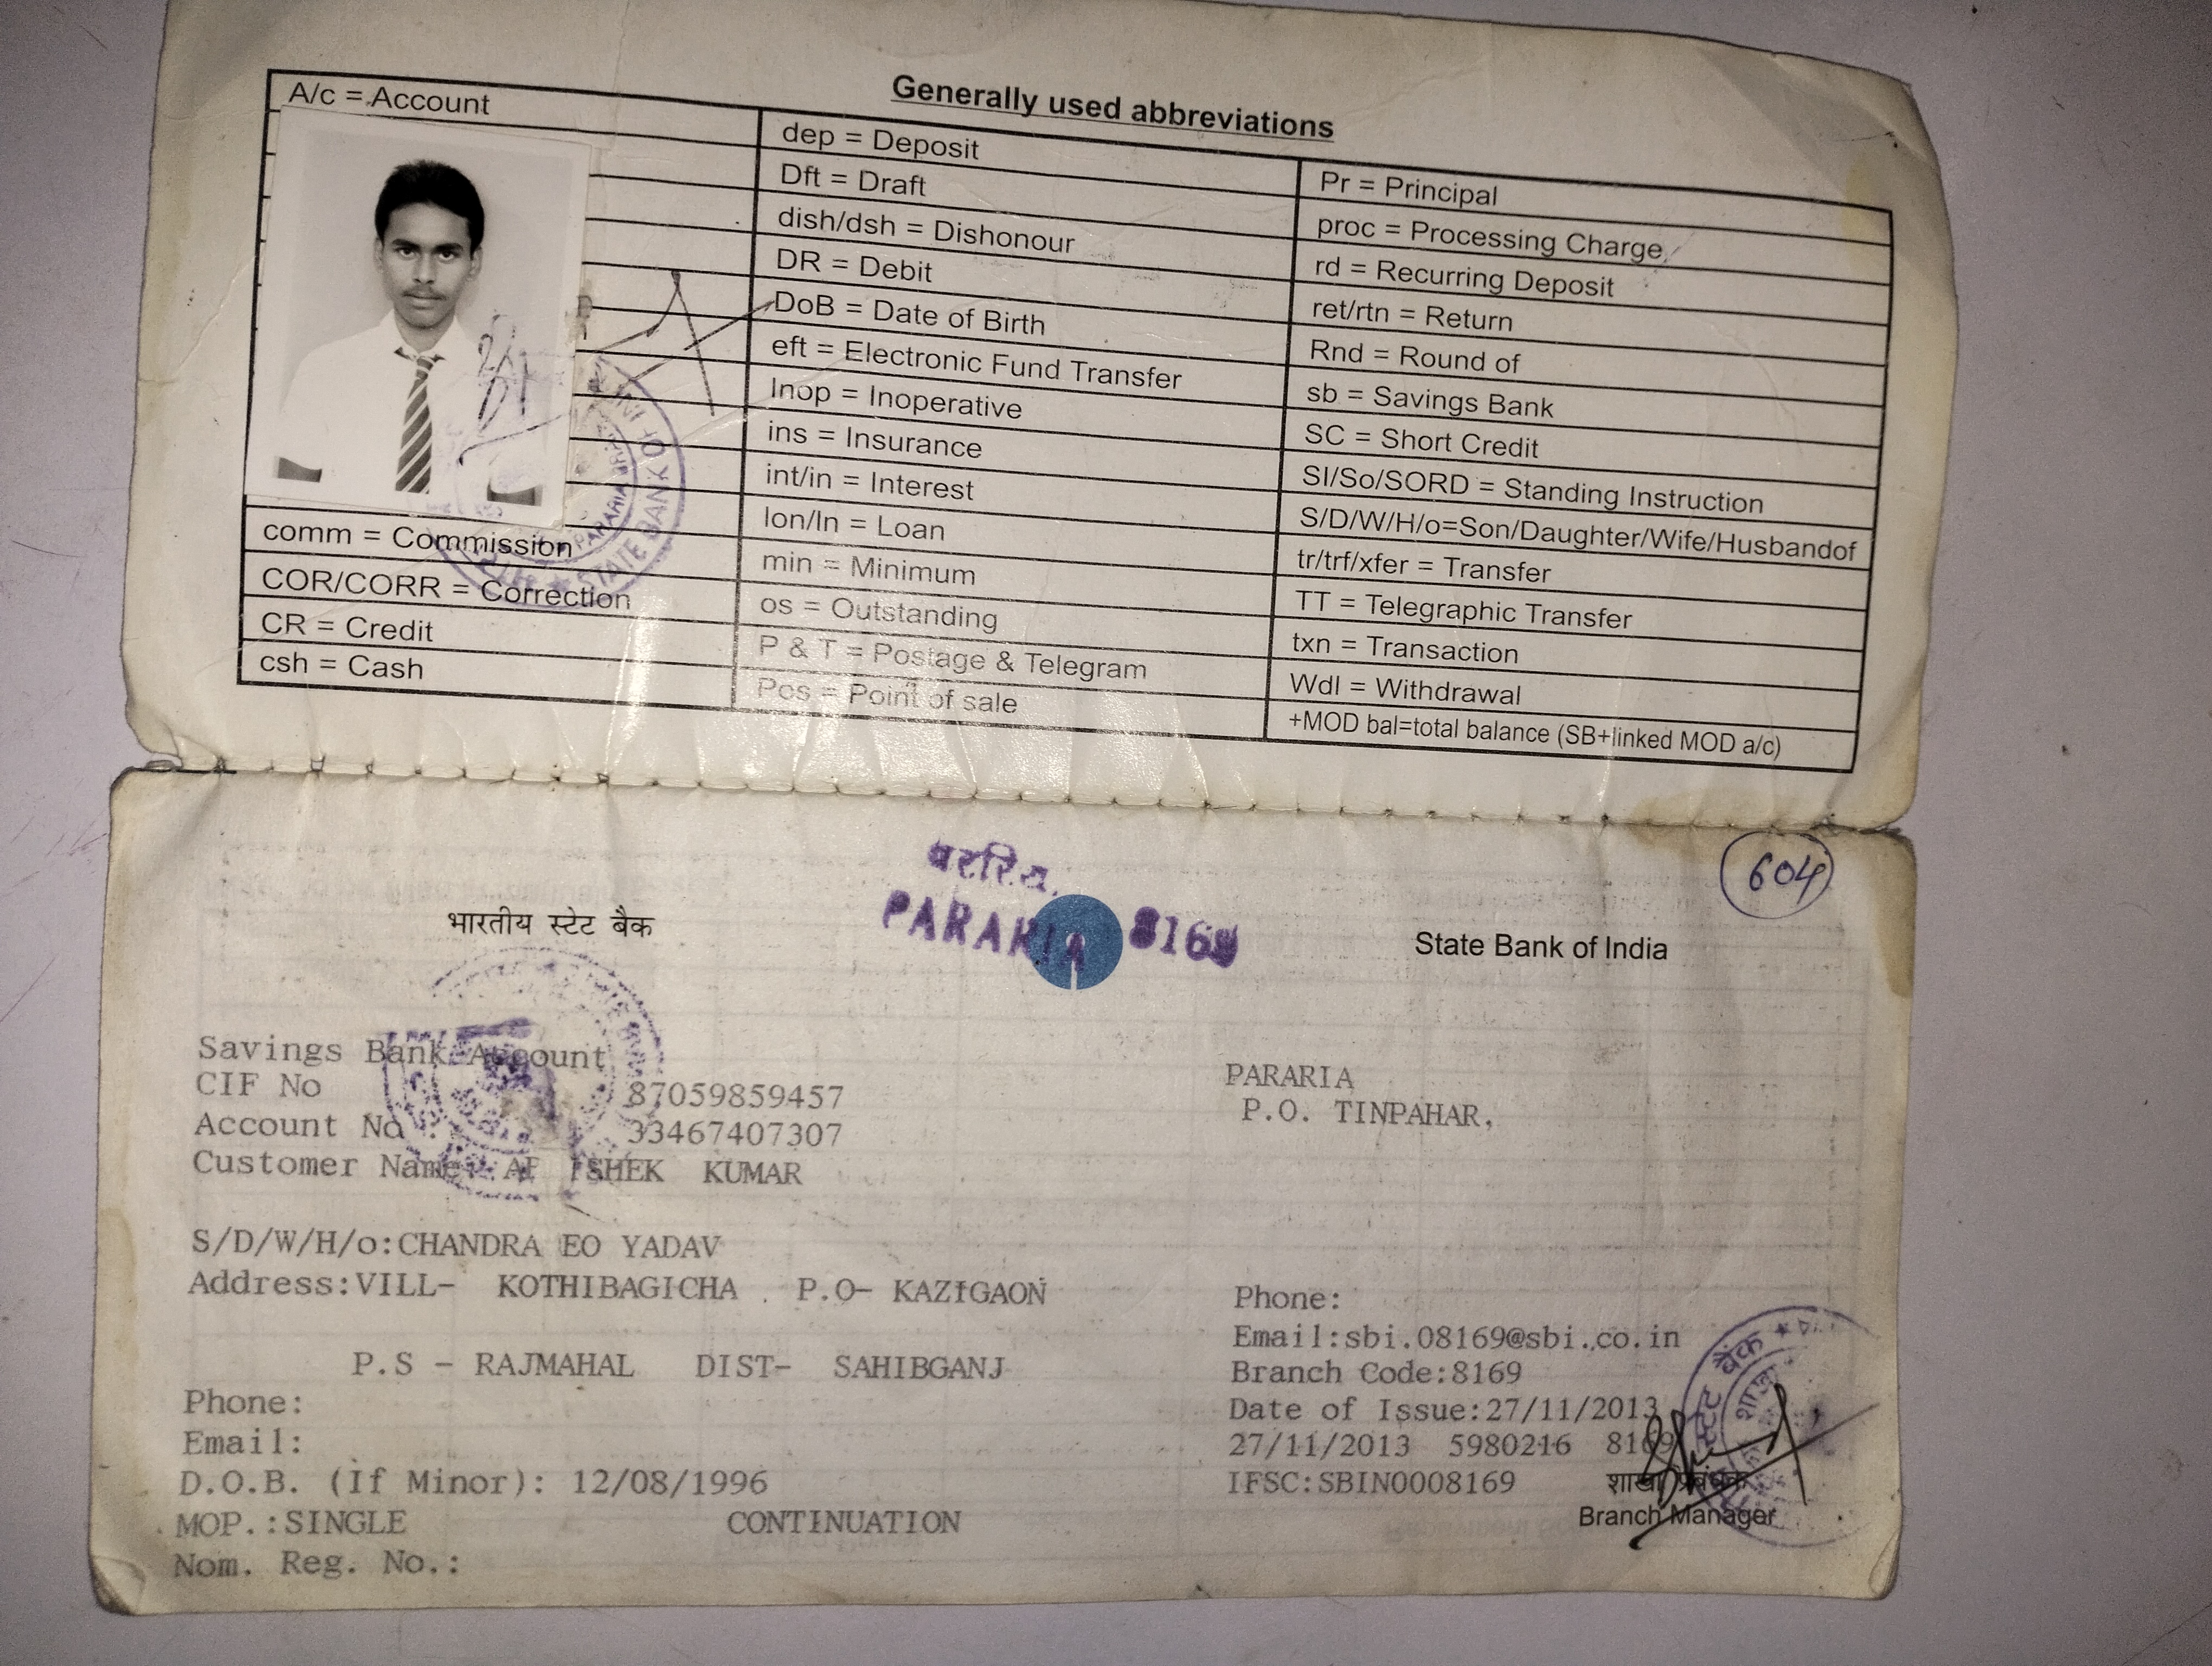 Generally used abbreviations
A/c = Account
comm = Commission
COR/CORR = Correction
CR = Credit
csh = Cash
dep = Deposit
Dft = Draft
dish/dsh = Dishonour
DR = Debit
DoB = Date of Birth
eft = Electronic Fund Transfer
Inop = Inoperative
ins = Insurance
int/in = Interest
lon/ln = Loan
min = Minimum
os = Outstanding
P & T = Postage & Telegram
Pos = Point of sale
Pr = Principal
proc = Processing Charge
rd = Recurring Deposit
ret/rtn = Return
Rnd = Round of
sb = Savings Bank
SC = Short Credit
SI/So/SORD = Standing Instruction
S/D/W/H/o=Son/Daughter/Wife/Husbandof
tr/trf/xfer = Transfer
TT = Telegraphic Transfer
txn = Transaction
Wdl = Withdrawal
+MOD bal=total balance (SB+linked MOD a/c)
STATE BANK OF
PARARIA
604
PARARIA 8169
भारतीय स्टेट बैंक
State Bank of India
Savings Bank Account
CIF No 87059859457
Account No : 33467407307
Customer Name: KUMAR
S/D/W/H/o:CHANDRA EO YADAV
Address:VILL- KOTHIBAGICHA P.O- KAZIGAON
P.S - RAJMAHAL DIST- SAHIBGANJ
Phone:
Email:
D.O.B. (If Minor): 12/08/1996
MOP.:SINGLE CONTINUATION
Nom. Reg. No.:
PARARIA
P.O. TINPAHAR,
Phone:
Email:sbi.08169@sbi.co.in
Branch Code:8169
Date of Issue:27/11/2013
27/11/2013 5980216 8169
IFSC:SBIN0008169
शाखा प्रबंधक
Branch Manager
स्टेट बैंक